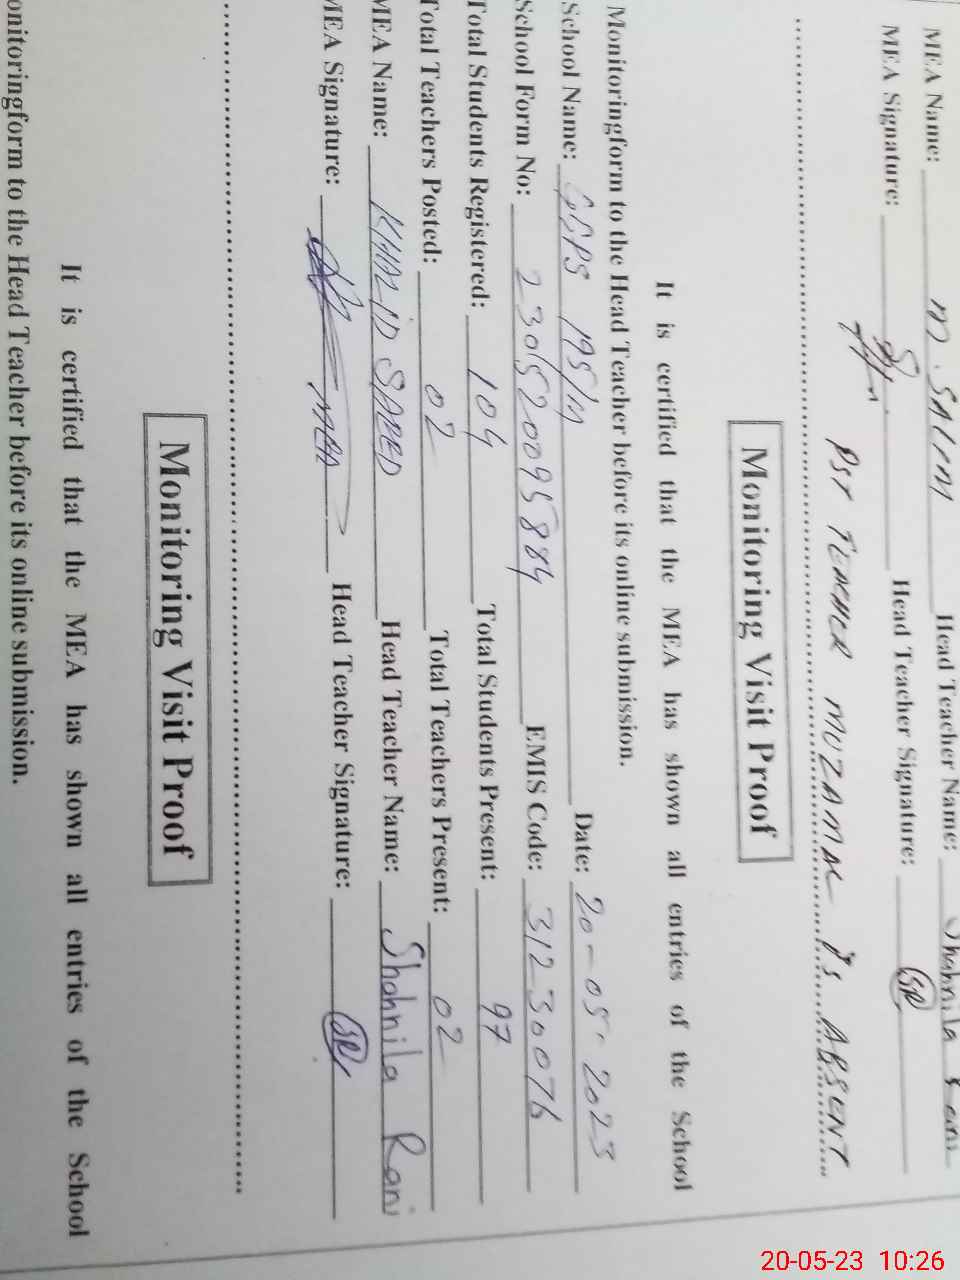 MEA Name: M. SALIM Head Teacher Name: Shahnila Rani
MEA Signature: Head Teacher Signature: SR
PST TEACHER MUZAMAL is ABSENT
Monitoring Visit Proof
It is certified that the MEA has shown all entries of the School
Monitoringform to the Head Teacher before its online submission.
School Name: GGPS 195/M Date: 20-05-2023
School Form No: 230520095884 EMIS Code: 31230076
Total Students Registered: 104 Total Students Present: 97
Total Teachers Posted: 02 Total Teachers Present: 02
MEA Name: KHALID SAEED Head Teacher Name: Shahnila Rani
MEA Signature: MEA Head Teacher Signature: SR
Monitoring Visit Proof
It is certified that the MEA has shown all entries of the School
onitoringform to the Head Teacher before its online submission.
20-05-23 10:26